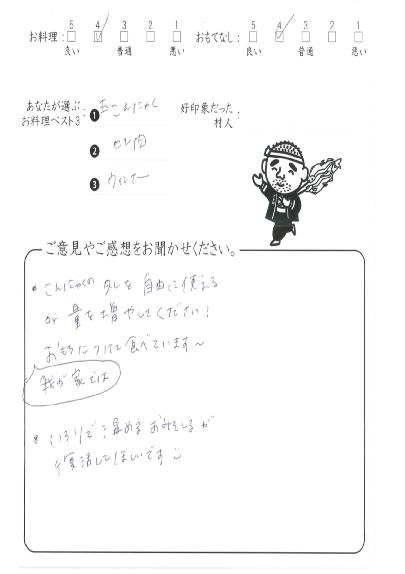 5 4 3 2 1
お料理: □ ☑ □ □ □
良い 普通 悪い
5 4 3 2 1
おもてなし: □ ☑ □ □ □
良い 普通 悪い
あなたが選ぶ
お料理ベスト3:
❶ 玉こんにゃく
❷ ヒレ肉
❸ ウィンナー
好印象だった
村人:
ご意見やご感想をお聞かせください。
• こんにゃくのタレを自由に使える
or 量を増やしてください!
おもちにつけて食べています〜
我が家では
• いろりで温めるおみそしるが
復活してほしいです